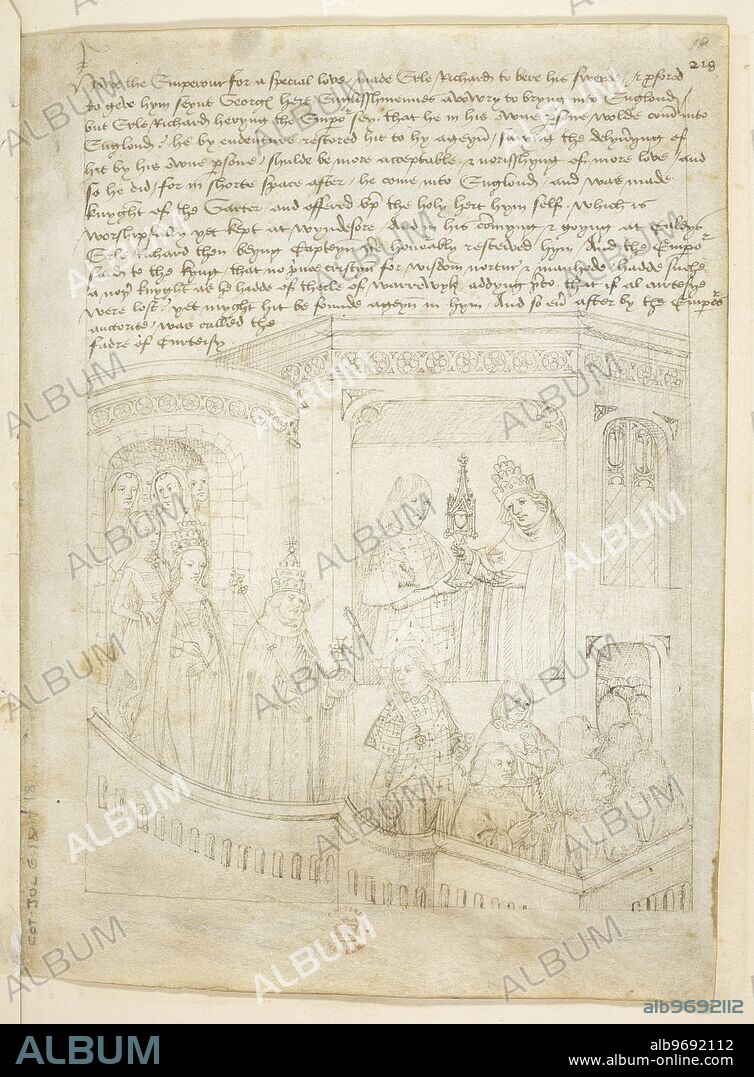 18
218
Now the Emperour for a special love made Erle Richard to bere his swerde / & profered
to geve hym seynt Georges hert Englisshmennes avowry to bryng into Englond /
but Erle Richard heryng the Empor sey that he in his owne psone wolde come into
Englond he by endenture restored hit to hy ageyn / saying the delyveryng of
hit by his owne psone / shulde be more acceptable & norisshyng of more love / and
so he did / for in shorte space after / he come into Englond and was made
knyght of the Garter and offered up the holy hert hym self which is
worshipfully yet kept at wyndesore And in his comyng & goyng at Caleys
Erle Richard then beyng Capteyn ther honorably resceived hym And the Empor
said to the kyng that no prince cristyn for wisdom nortur & manhode hadde suche
a noy knyght as he hadde of therle of Warrewyk / addyng therto that if al curtesye
were lost / yet myght hit be founde ageyn in hym And so ev after by the Emperors
auctorite was called the
fadre of Curtesy
COT. JUL. E. IV.
ALBUM
alb9692112
ALBUM
alb9692112
www.album-online.com